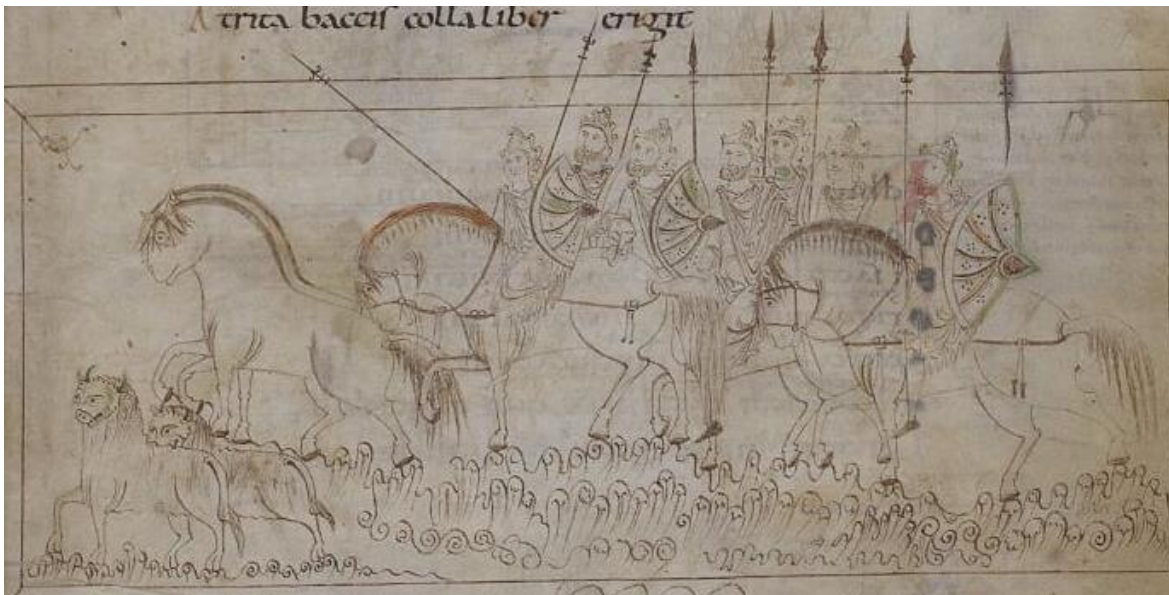 Atrita baccis colla liber erigit